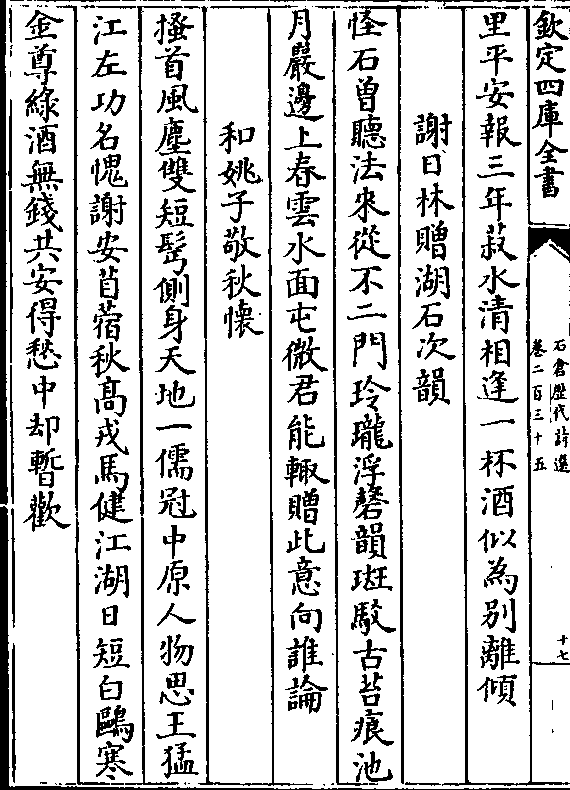 欽定四庫全書
石倉歷代詩選
卷二百三十五
十七
里平安報三年菽水清相逢一杯酒似為別離傾
謝日林贈湖石次韻
怪石曽聽法來從不二門玲瓏浮磬韻斑駁古苔痕池
月巖邊上春雲水面屯微君能輟贈此意向誰論
和姚子敬秋懷
搔首風塵雙短髩側身天地一儒冠中原人物思王猛
江左功名愧謝安苜蓿秋髙戎馬健江湖日短白鷗寒
金尊綠酒無錢共安得愁中却暫歡